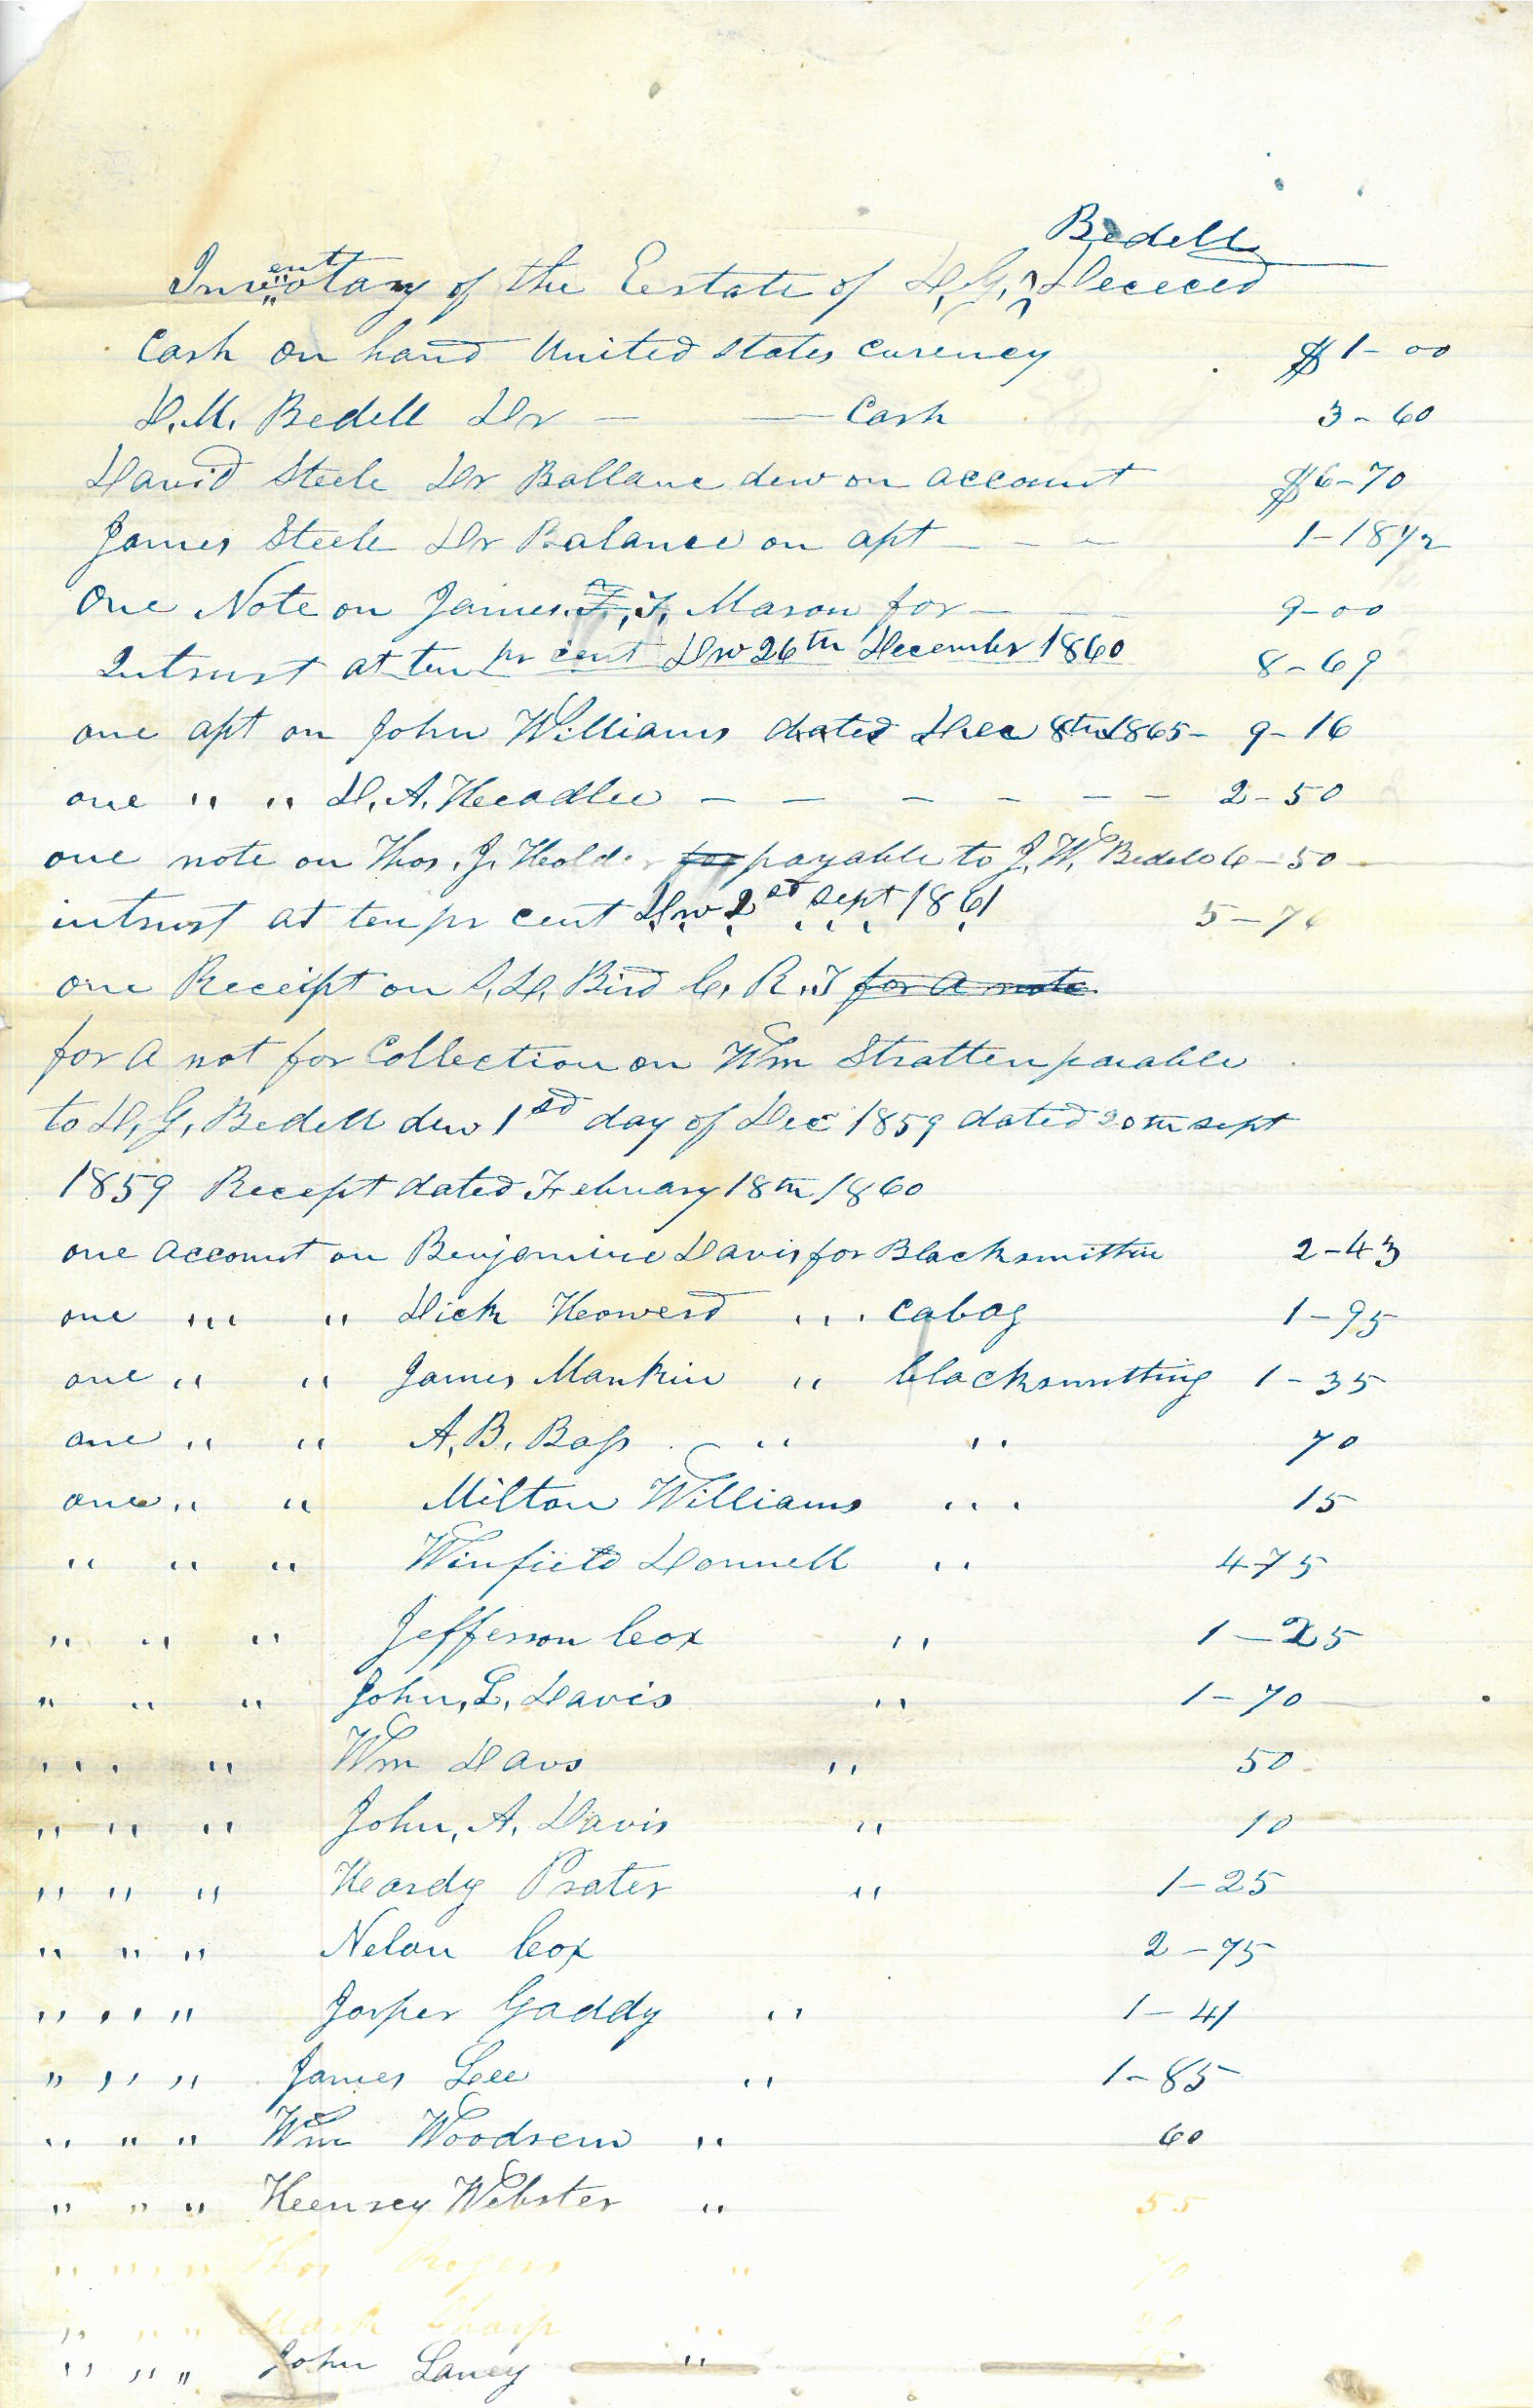 Bedell
Inventotary of the Eestate of D. G. ^ Dececed
Cash on hand United States curency $1-00
D. M. Bedell Dr — — Cash 3-60
David Steele Dr Ballanc dew on account $6-70
James Steele Dr Balance on apt - - - 1-18 1/2
One Note on James F. T. Mason for - - - 9-00
Intrust at ten pr cent Dw 26th December 1860 8-69
one apt on John Williams dated Dec 8th 1865- 9-16
one " " D. A. Headlee - - - - - - 2-50
one note on Thos. J. Holder for payable to J. W. Bedell 6-50
intrust at ten pr cent Dw 2nd Sept 1861 5-7
one Receipt on D. Bird C. R. T for a note
for A not for Collection on Wm Stratten paiable
to D. G. Bedell dew 1st day of Dec 1859 dated 20th sept
1859 Recept dated February 18th 1860
one account on Benjamine Davis for Blacksmithin 2-43
one " " Dick Howerd " cabag 1-95
one " " James Mankin " blacksmitting 1-35
one " " A. B. Bass " " 70
one " " Milton Williams " 15
" " " Winfield Donnell " 4-75
" " " Jefferson Cox " 1-25
" " " John, L. Davis " 1-70
" " " Wm Davs " 50
" " " John, A. Davis " 10
" " " Hardy Prater " 1-25
" " " Nelan Cox 2-75
" " " Jasper Gaddy " 1-41
" " " James Lee " 1-85
" " " Wm Woodsem " 60
" " " Heenrey Webster " 55
" " " Thos Rogers " 70
" " " Mark Sharp "
" " " John Laney "